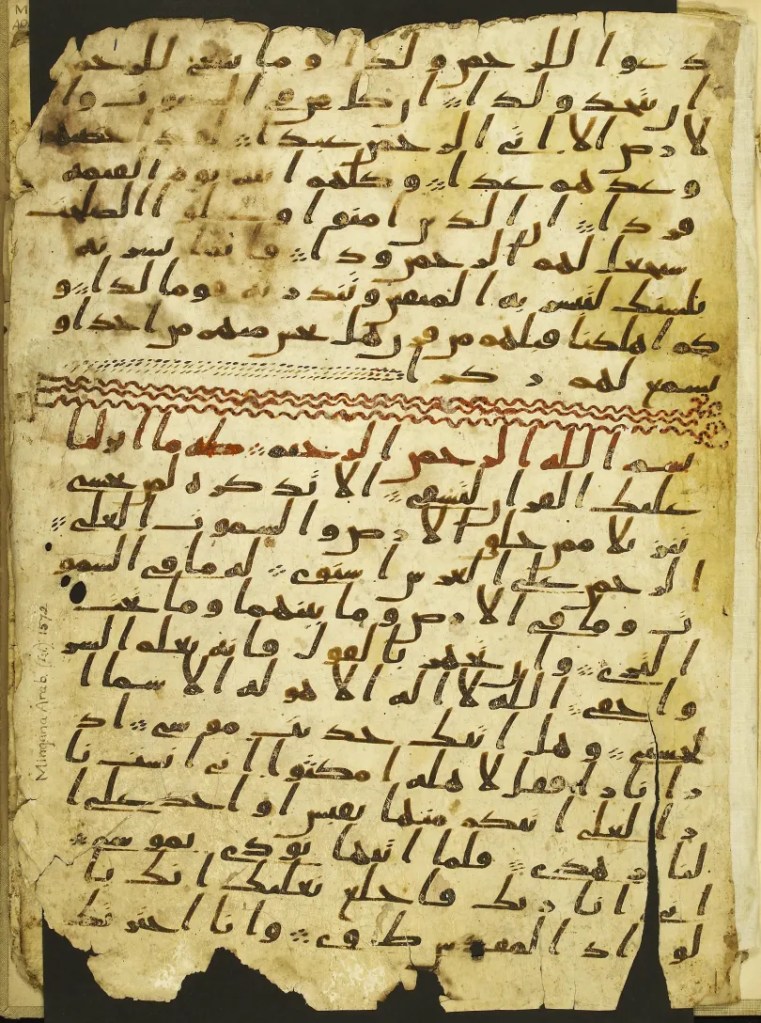 دعوا للرحمن ولدا وما ينبغي للرحمن
ان يتخذ ولدا ان كل من في السموت وا
لارض الا اتي الرحمن عبدا لقد احصهم
وعدهم عدا وكلهم اتيه يوم القيمة
فردا ان الذين امنوا وعملوا الصلحت
سيجعل لهم الرحمن ودا فانما يسرنه
بلسنك لتبشر به المتقين وتنذر به قوما لدا و
كم اهلكنا قبلهم من قرن هل تحس منهم من احد او
تسمع لهم ركزا
بسم الله الرحمن الرحيم طه ما انزلنا
عليك القران لتشقى الا تذكرة لمن يخشى
تنزيلا ممن خلق الارض والسموت العلى
الرحمن على العرش استوى له ما في السمو
ت وما في الارض وما بينهما وما تحت
الثرى وان تجهر بالقول فانه يعلم السر
واخفى الله لا اله الا هو له الاسما ا
لحسنى وهل اتيك حديث موسى اذ
را نارا فقل لاهله امكثوا اني انست نا
را لعلي اتيكم منها بقبس او اجد على ا
لنار هدى فلما اتيها نودي يموسى
اني انا ربك فاخلع نعليك انك با
لواد المقدس طوى وانا اخترتك
Mingana Arab. (Isl.) 1572